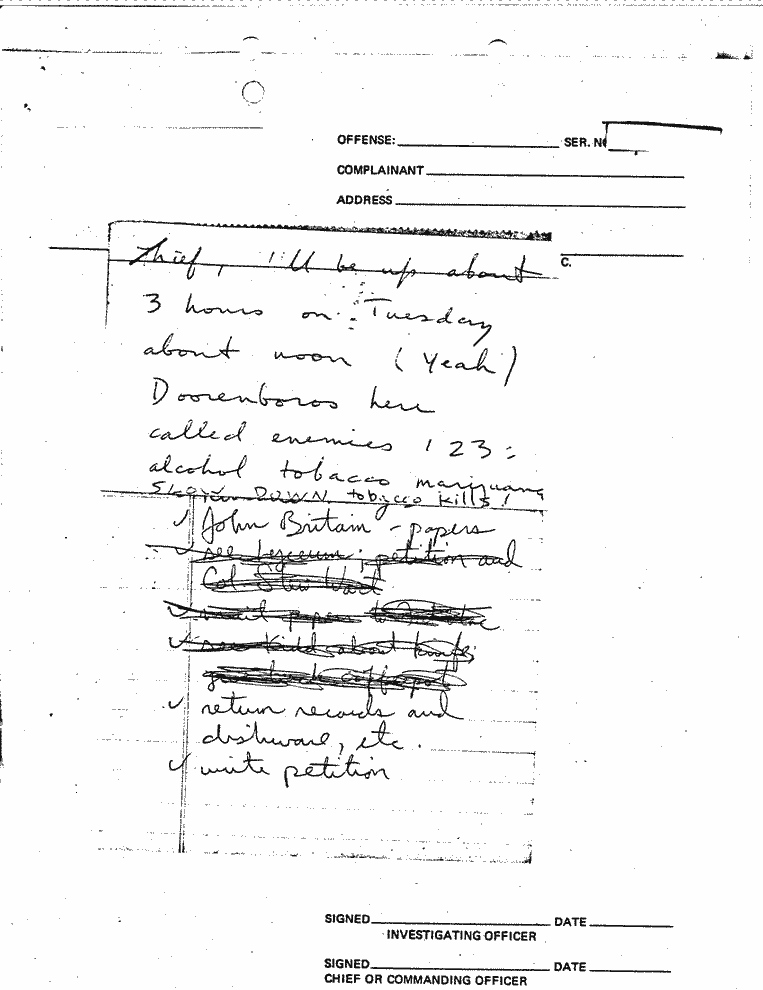 OFFENSE: SER. NO
COMPLAINANT
ADDRESS
C.
Thief, I'll be up about
3 hours on Tuesday
about noon (Yeah)
Doorenboros here
called enemies 1 2 3:
alcohol tobacco marijuana
Slow DOWN. tobacco kills!
✓ John Britain - papers
✓ see Lyceum; petition and
Col
✓ mail paper to
✓ see Kidd about knife;
coffeepot
✓ return records and
dishware, etc.
✓ write petition
SIGNED DATE
INVESTIGATING OFFICER
SIGNED DATE
CHIEF OR COMMANDING OFFICER